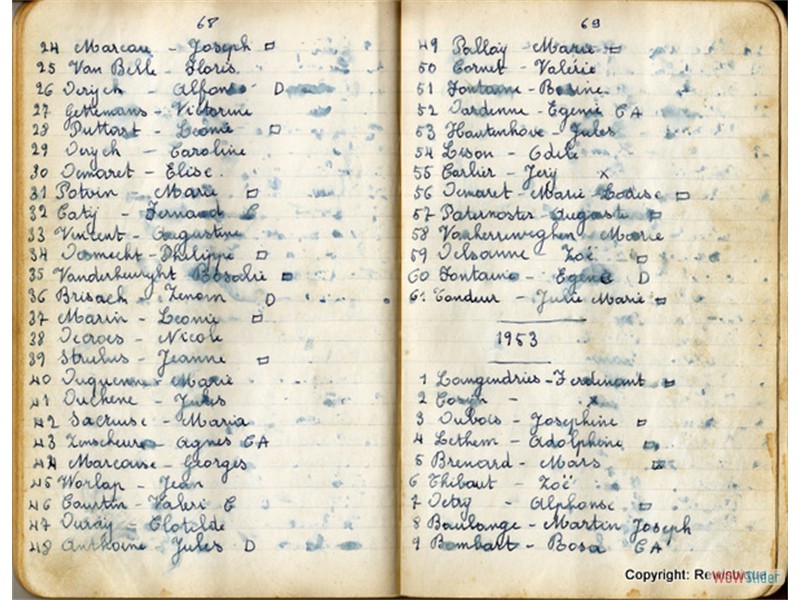 68
24 Marcau - Joseph
25 Van Belle - Floris
26 Derych - Alfons D
27 Gettemans - Victorine
28 Puttart - Léonie
29 Derych - Caroline
30 Demaret - Elise
31 Potvin - Marie
32 Caty - Fernand C
33 Vincent - Augustine
34 Desmecht - Philippe
35 Vanderheurght Rosalie
36 Brisack - Zenom D
37 Marin - Léonie
38 Decroes - Nicole
39 Strulus - Jeanne
40 Duquenne - Marie
41 Duchene - Jules
42 - Maria
43 - Agnes CA
44 Marcause - Georges
45 Worlap - Jean
46 Courtin - Valeri C
47 Duray - Clotilde
48 Anthoine Jules D
69
49 Pallay Marie
50 Cornet - Valérie
51 Fontaine - Rosine
52 Dardenne - Egenie CA
53 Hautenhove - Jules
54 Lison - Odile
55 Carlier - Jery x
56 Demaret - Marie Lodise
57 Paternoster Auguste
58 Vanherreweghen Marie
59 Delsanne Zoé
60 Fontaine - Egenie D
61 Tondeur - Julie Marie
1953
1 Langendries - Ferdinant
2 - x
3 Dubois - Josephine
4 Lethem - Adolphine
5 Brenard - Mars
6 Thibaut - Zoé
7 Detry - Alphonse
8 Boulange - Martin Joseph
9 Bombart - Rosa CA
Copyright: Re
WOWSlider